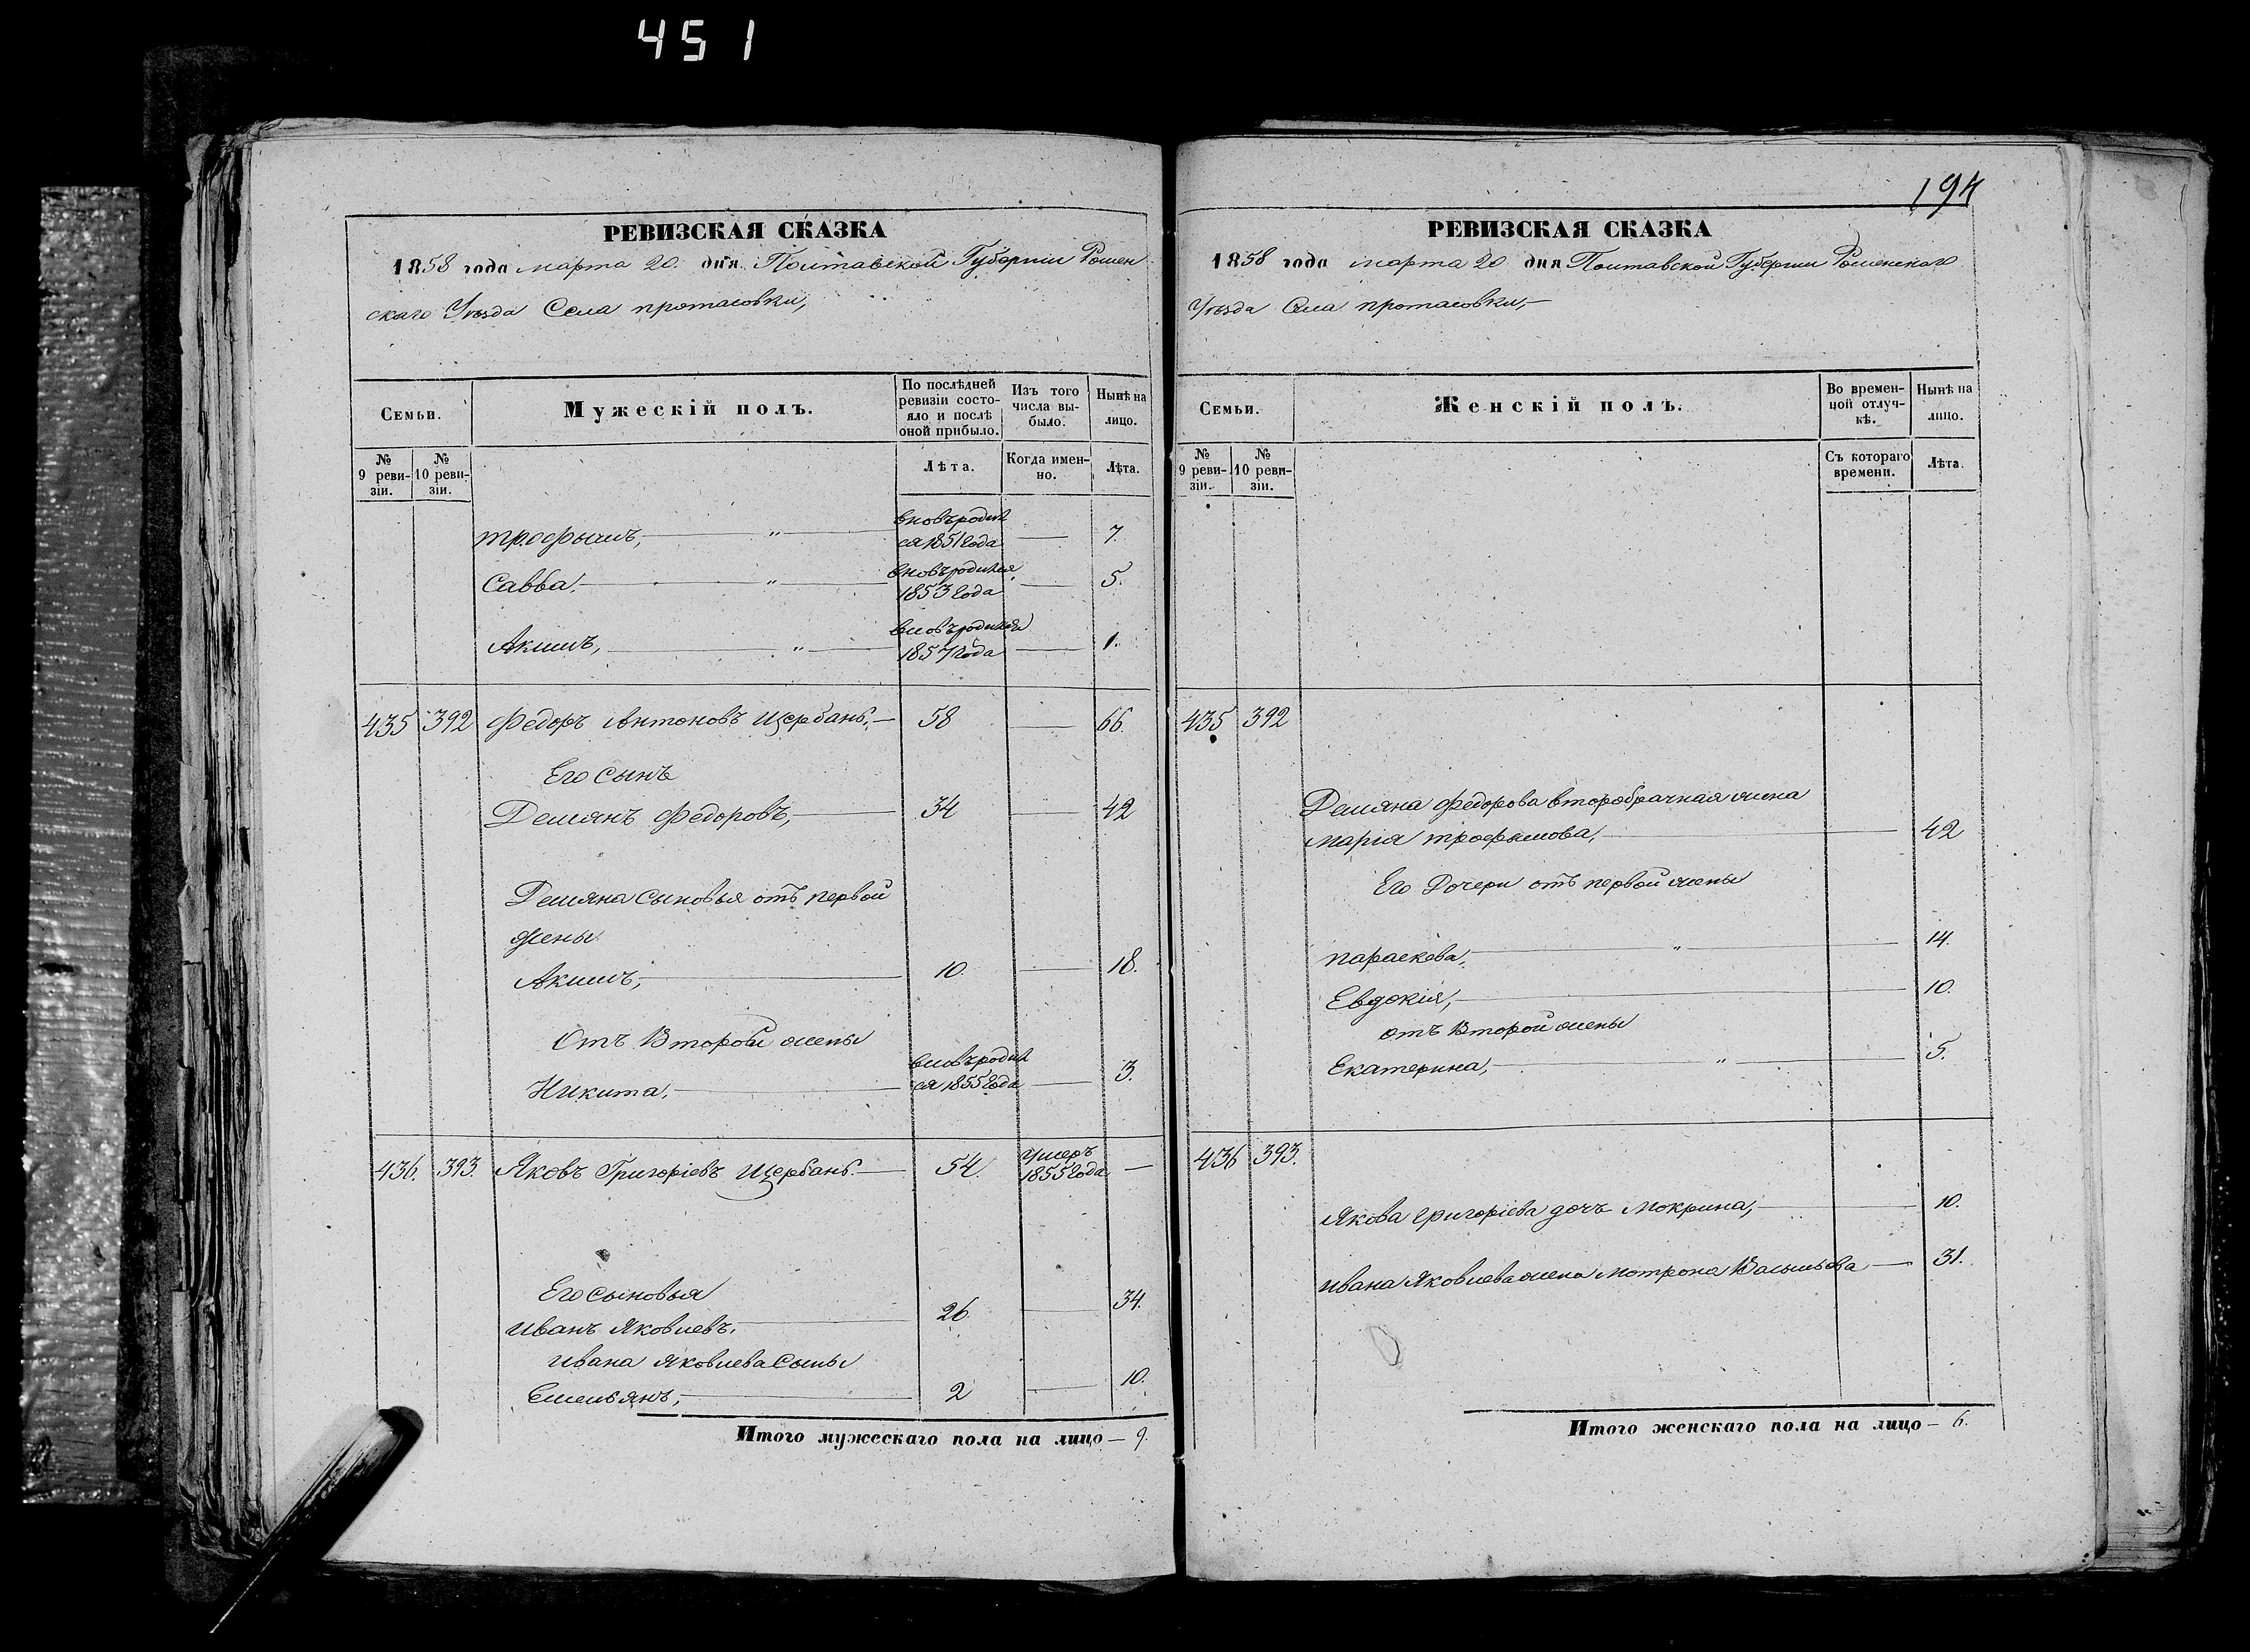 451
РЕВИЗСКАЯ СКАЗКА
1858 года марта 20. дня Полтавской Губернiи Ромен
скаго Уѣзда Села протасовки,
Семьи.
Мужескiй полъ.
По послѣдней ревизiи состояло и послѣ оной прибыло.
Изъ того числа выбыло.
Нынѣ на лицо.
№ 9 ревизiи.
№ 10 ревизiи.
Лѣта.
Когда именно.
Лѣта.
трофымъ, " вновьродил
ся 1851 года — 7.
Савва, " вновьродился
1853 года — 5.
Акимъ, " вновьродился
1857 года — 1.
435 392 Федоръ Антоновъ Щербань, — 58 — 66.
Его сынъ
Демянъ Федоровъ, — 34 — 42
Демяна сыновья отъ первой
жены
Акимъ, — 10. — 18.
Отъ Второй жены
Никита, — вновьродил
ся 1855 года — 3.
436. 393. Яковъ Григорiевъ Щербань. — 54. умеръ
1855 года —
Его сыновья
Иванъ Яковлевъ. — 26. — 34.
Ивана Яковлева сыны
Емельянъ, — 2 — 10.
Итого мужескаго пола на лицо — 9.
194
РЕВИЗСКАЯ СКАЗКА
1858 года марта 20 дня Полтавской Губернiи Роменскаго
Уѣзда Села протасовки, —
Семьи.
Женскiй полъ.
Во временной отлучкѣ.
Нынѣ на лицо.
№ 9 ревизiи.
№ 10 ревизiи.
Съ котораго времени.
Лѣта.
435 392
Демяна Федорова второбрачная жена
марiя трофымова, — 42
Его Дочери отъ первой жены
параскева, " 14.
Евдокiя, — 10.
отъ Второй жены
Екатерина, " 5.
436 393.
Якова григорiева дочъ Мокрина, — 10.
Ивана Яковлева жена Мотрона Васильева — 31.
Итого женскаго пола на лицо — 6.